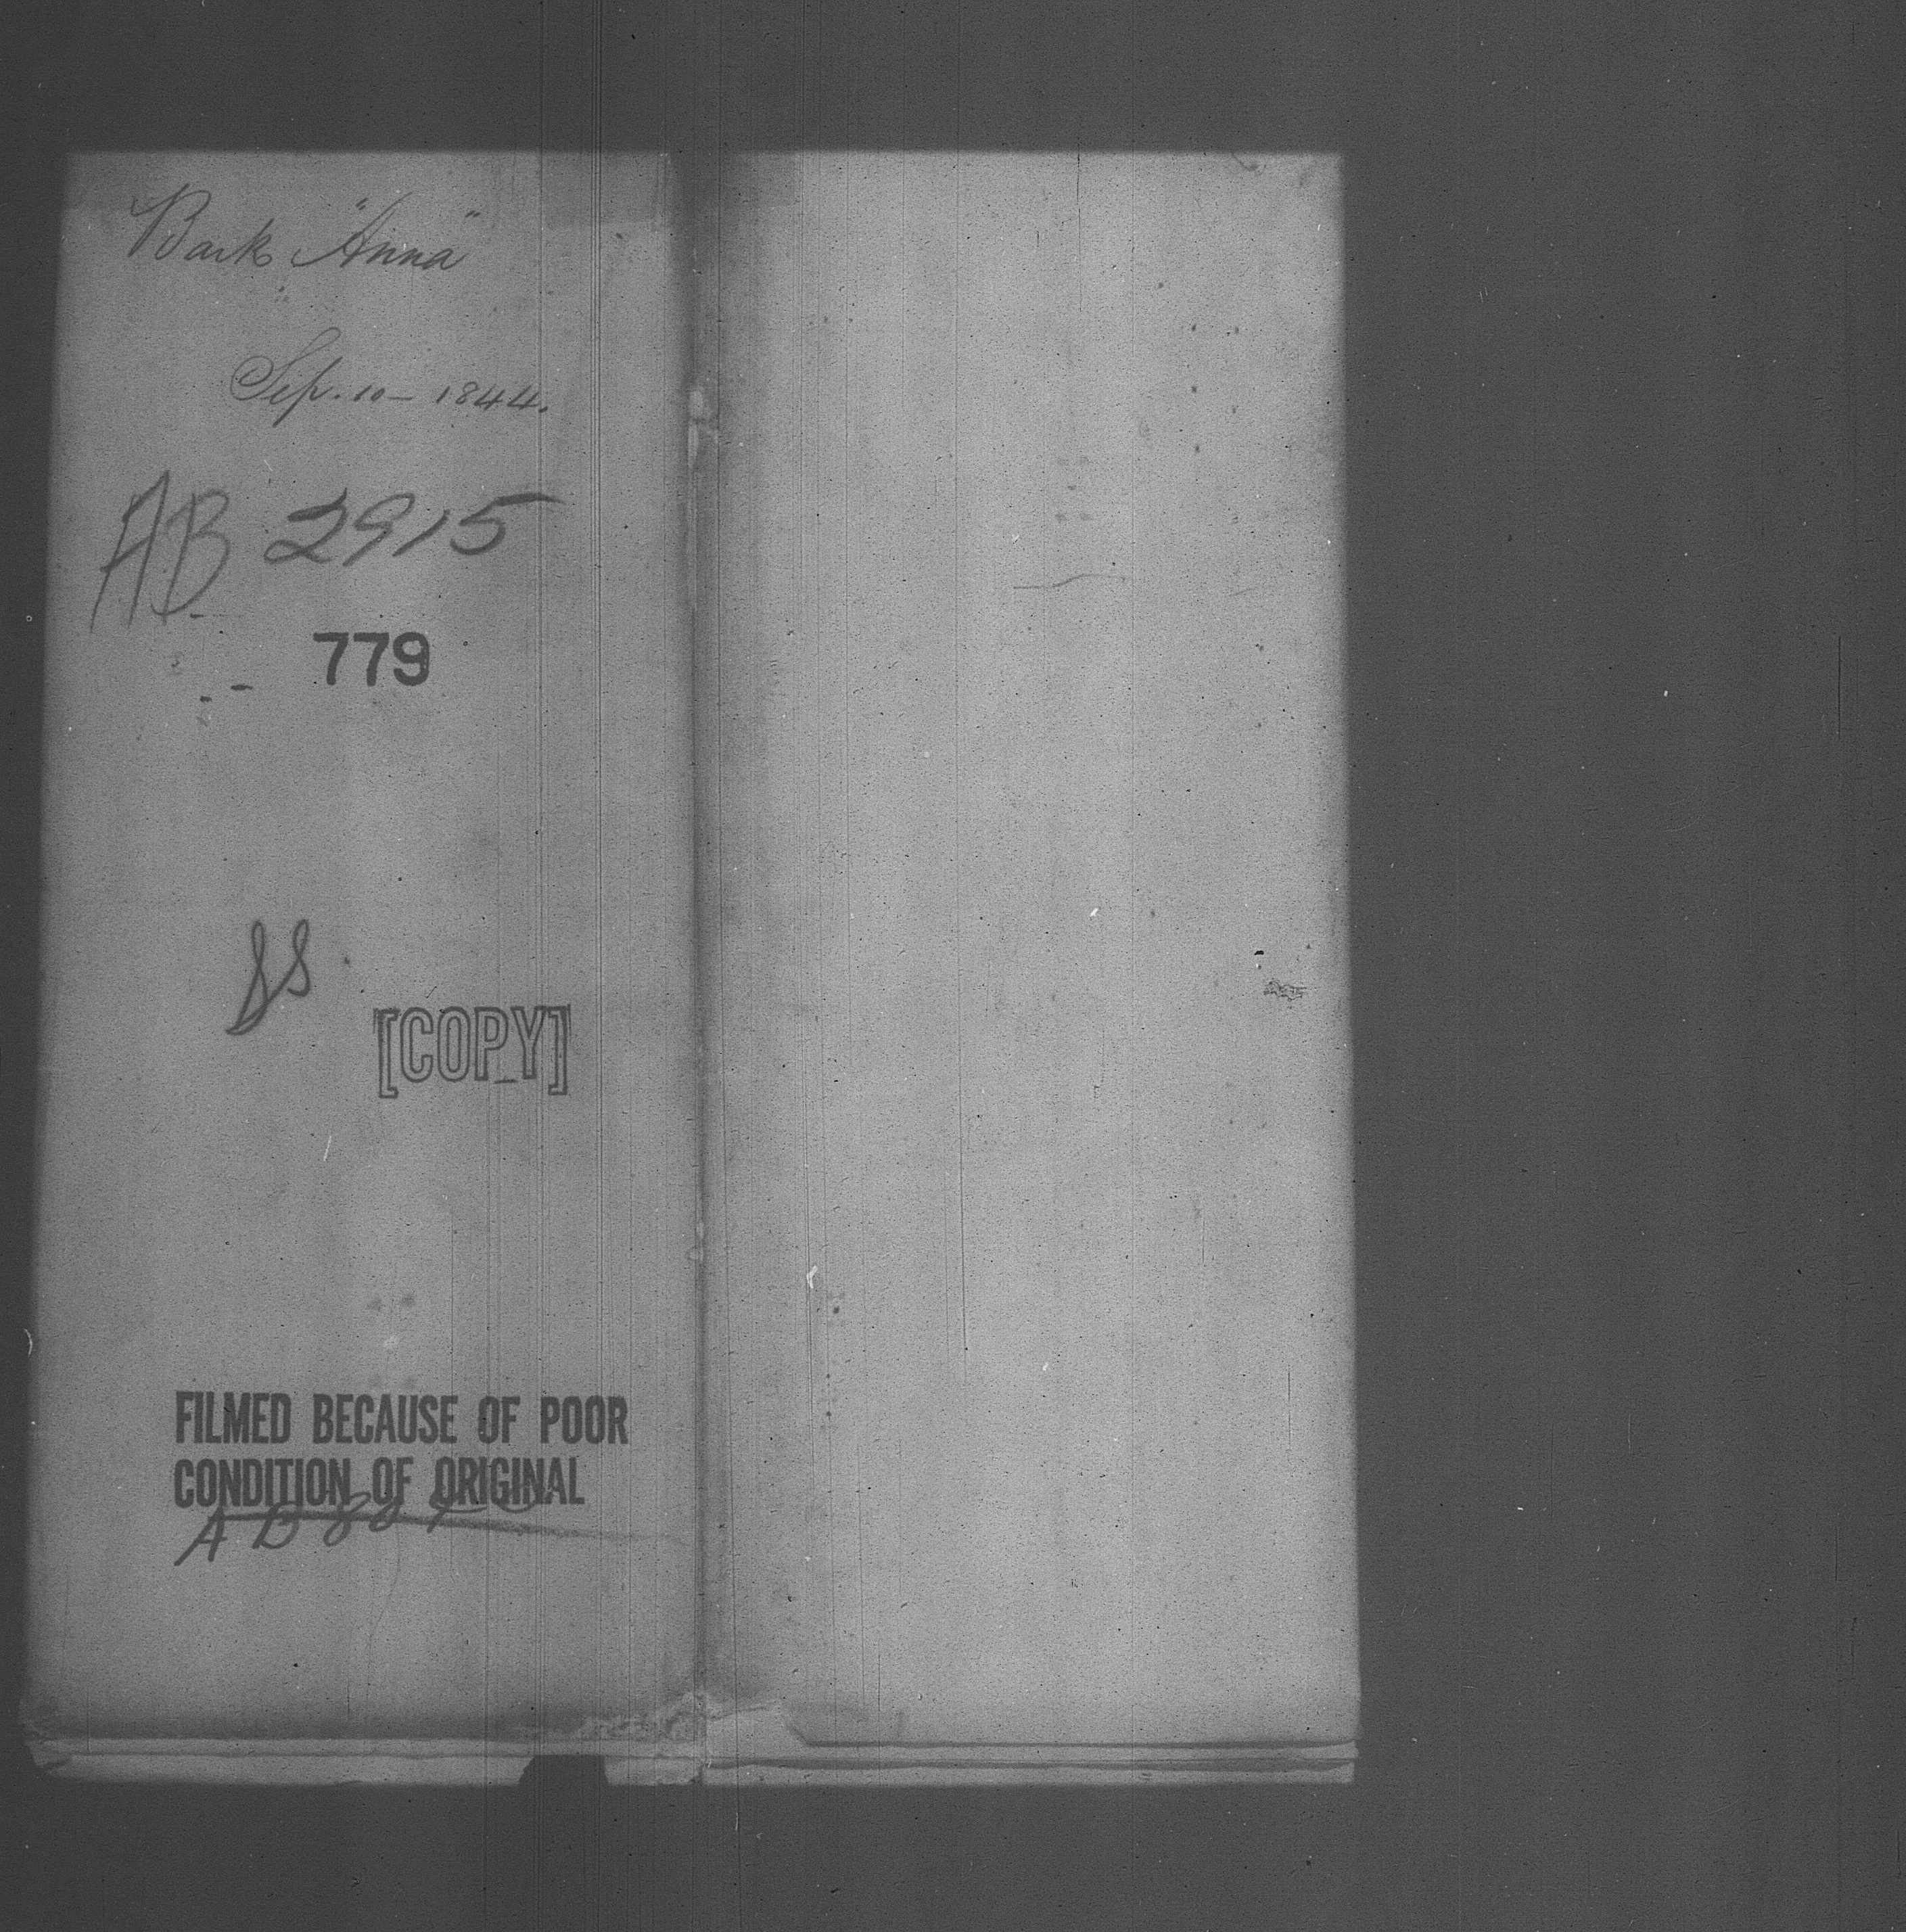 Bark "Anna"
Sep. 10 – 1844.
AB 2915
779
[COPY]
FILMED BECAUSE OF POOR
CONDITION OF ORIGINAL
A B